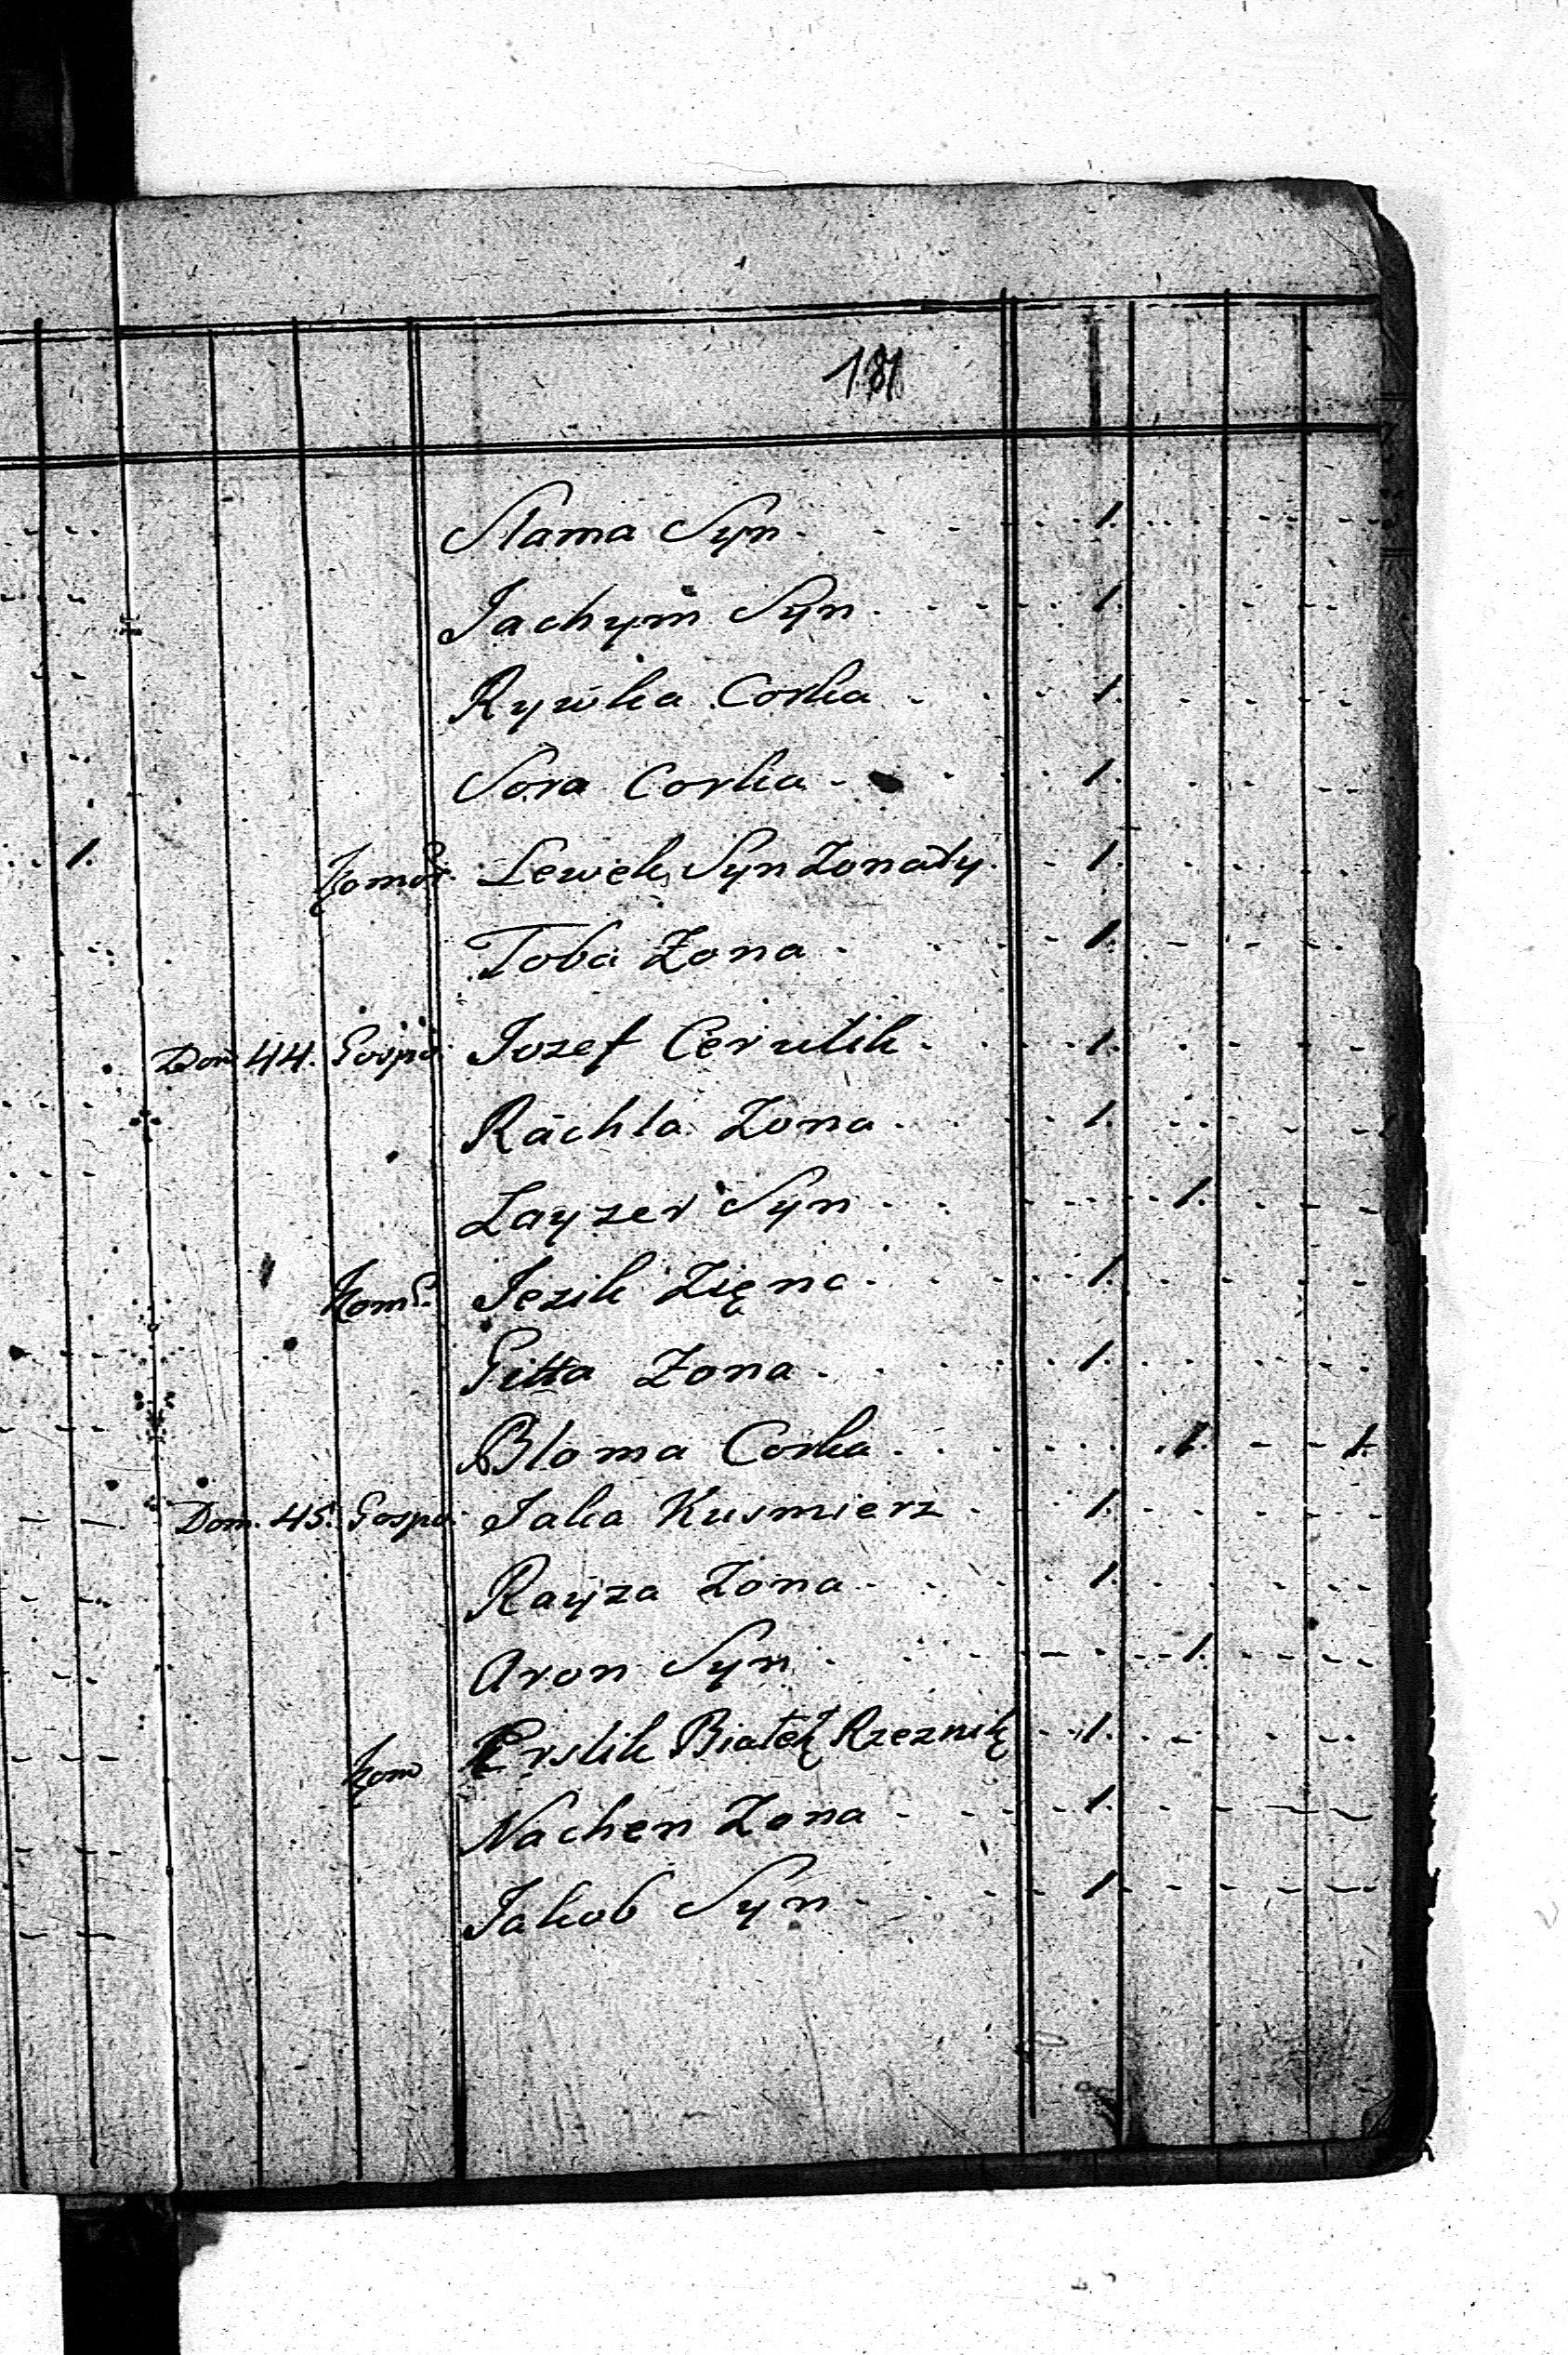 181
Slama Syn 1.
Jachym Syn 1.
Rywka Corka 1.
Sora Corka 1.
Komor. Lewek Syn Zonaty 1.
Toba Zona 1.
Dom 44. Gospo. Jozef Cerulik 1.
Rachla Zona 1.
Layzer Syn 1.
Kom. Jezik Zięnc 1.
Gitta Zona 1.
Bloma Corka 1. 1.
Dom. 45. Gospo. Jaka Kusmierz 1.
Rayza Zona 1.
Aron Syn 1.
Kom Erslik Białek Rzeznik 1.
Nachen Zona 1.
Jakob Syn 1.